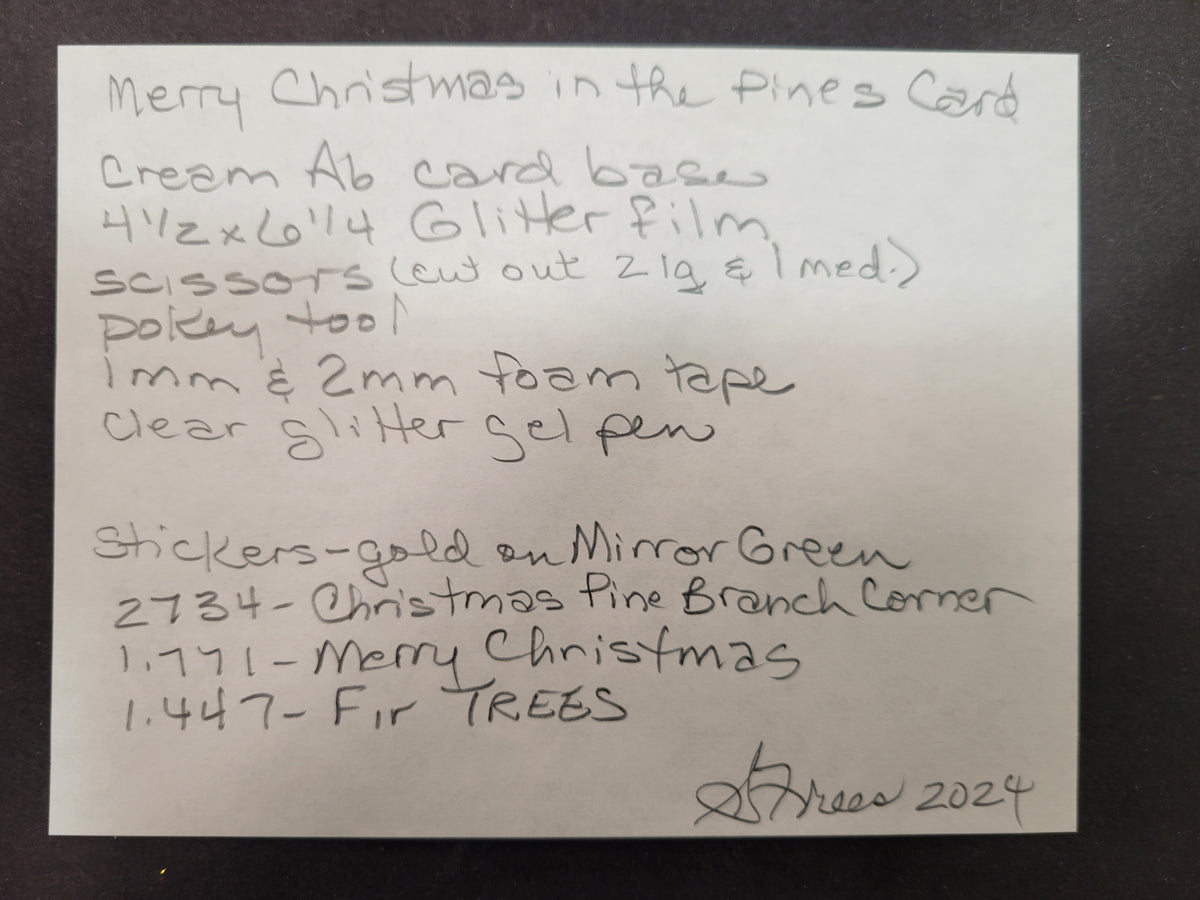 Merry Christmas in the Pines Card
Cream A6 card base
4 1/2 x 6 1/4 Glitter film
scissors (cut out 2 lg & 1 med.)
pokey tool
1mm & 2mm foam tape
clear glitter gel pen
Stickers-gold on Mirror Green
2734- Christmas Pine Branch Corner
1.771- Merry Christmas
1.447- Fir TREES
2024